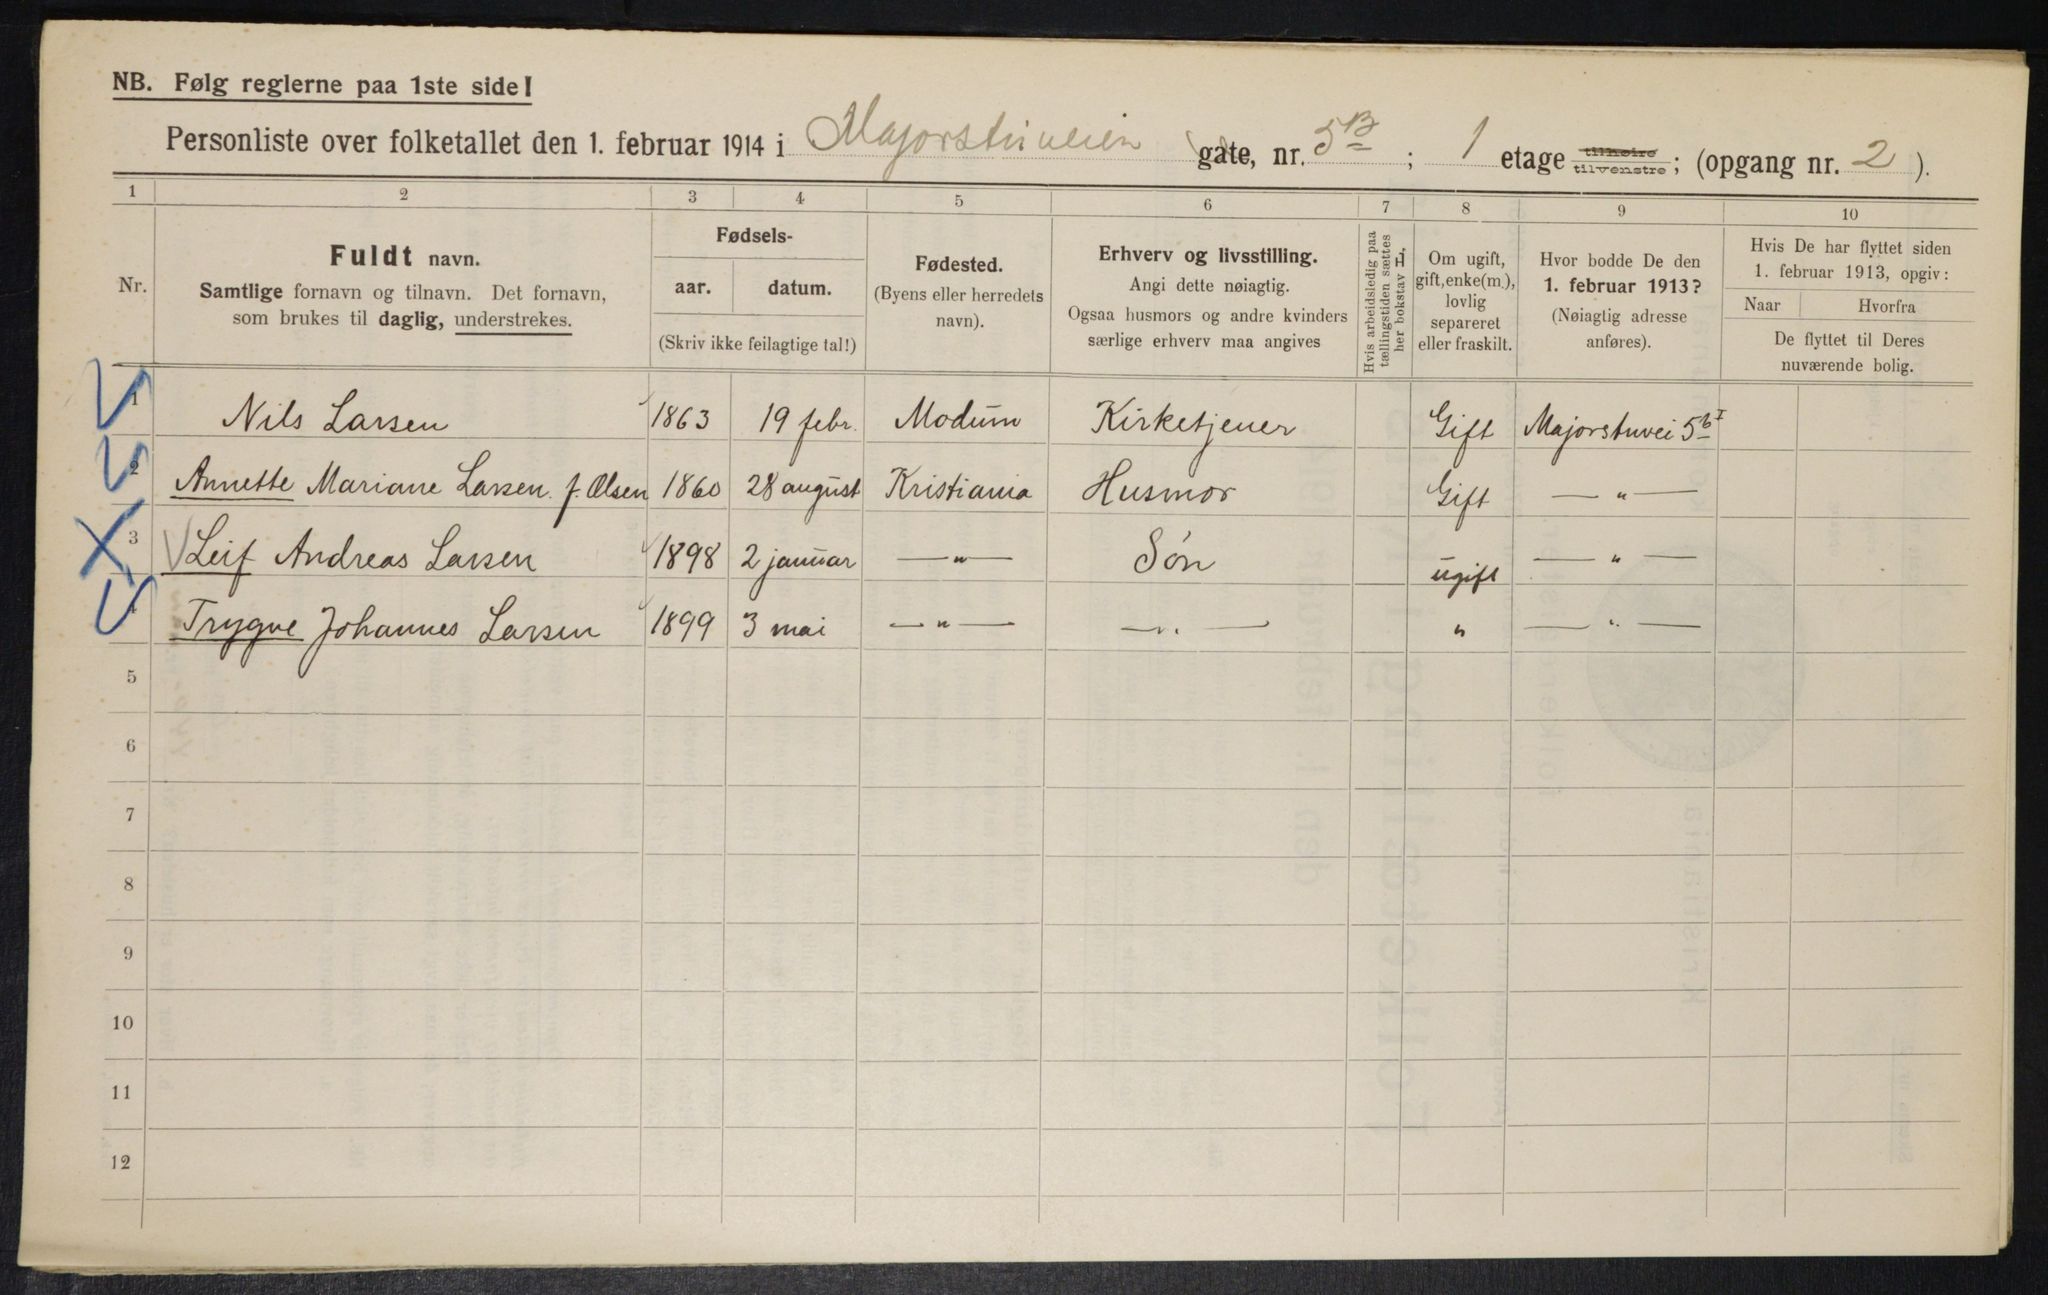 NB. Følg reglerne paa 1ste side!
Personliste over folketallet den 1. februar 1914 i Majorstuveien gate, nr. 5B ; 1 etage tilhøire tilvenstre ; (opgang nr. 2 ).
1 2 3 4 5 6 7 8 9 10
Nr.
Fuldt navn.
Samtlige fornavn og tilnavn. Det fornavn,
som brukes til daglig, understrekes.
Fødsels-
aar. datum.
(Skriv ikke feilagtige tal!)
Fødested.
(Byens eller herredets
navn).
Erhverv og livsstilling.
Angi dette nøiagtig.
Ogsaa husmors og andre kvinders
særlige erhverv maa angives
Hvis arbeidsledig paa
tællingstiden sættes
her bokstav L.
Om ugift,
gift, enke(m.),
lovlig
separeret
eller fraskilt.
Hvor bodde De den
1. februar 1913?
(Nøiagtig adresse
anføres).
Hvis De har flyttet siden
1. februar 1913, opgiv:
Naar Hvorfra
De flyttet til Deres
nuværende bolig.
1 Nils Larsen 1863 19 febr. Modum Kirketjener Gift Majorstuvei 5b I
2 Annette Mariane Larsen f. Olsen 1860 28 august Kristiania Husmor Gift — " —
3 Leif Andreas Larsen 1898 2 januar — " — Søn ugift — " —
4 Trygve Johannes Larsen 1899 3 mai — " — — " — " — " —
5
6
7
8
9
10
11
12